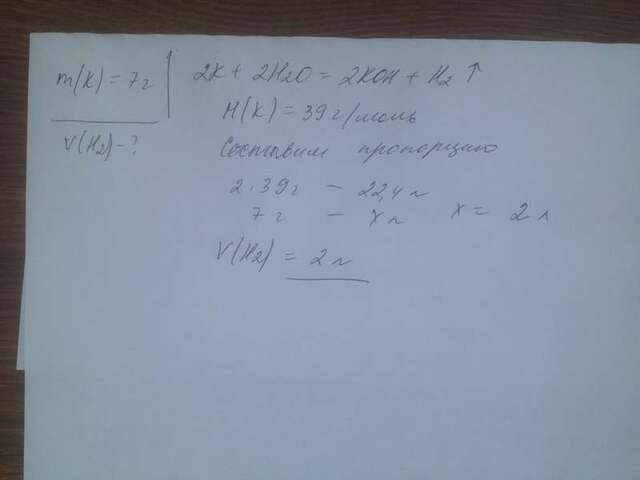 m(K) = 7г
V(H2) - ?
2K + 2H2O = 2KOH + H2 ↑
M(K) = 39 г/моль
Составим пропорцию
2·39г - 22,4 л
7 г - x л x = 2 л
V(H2) = 2 л